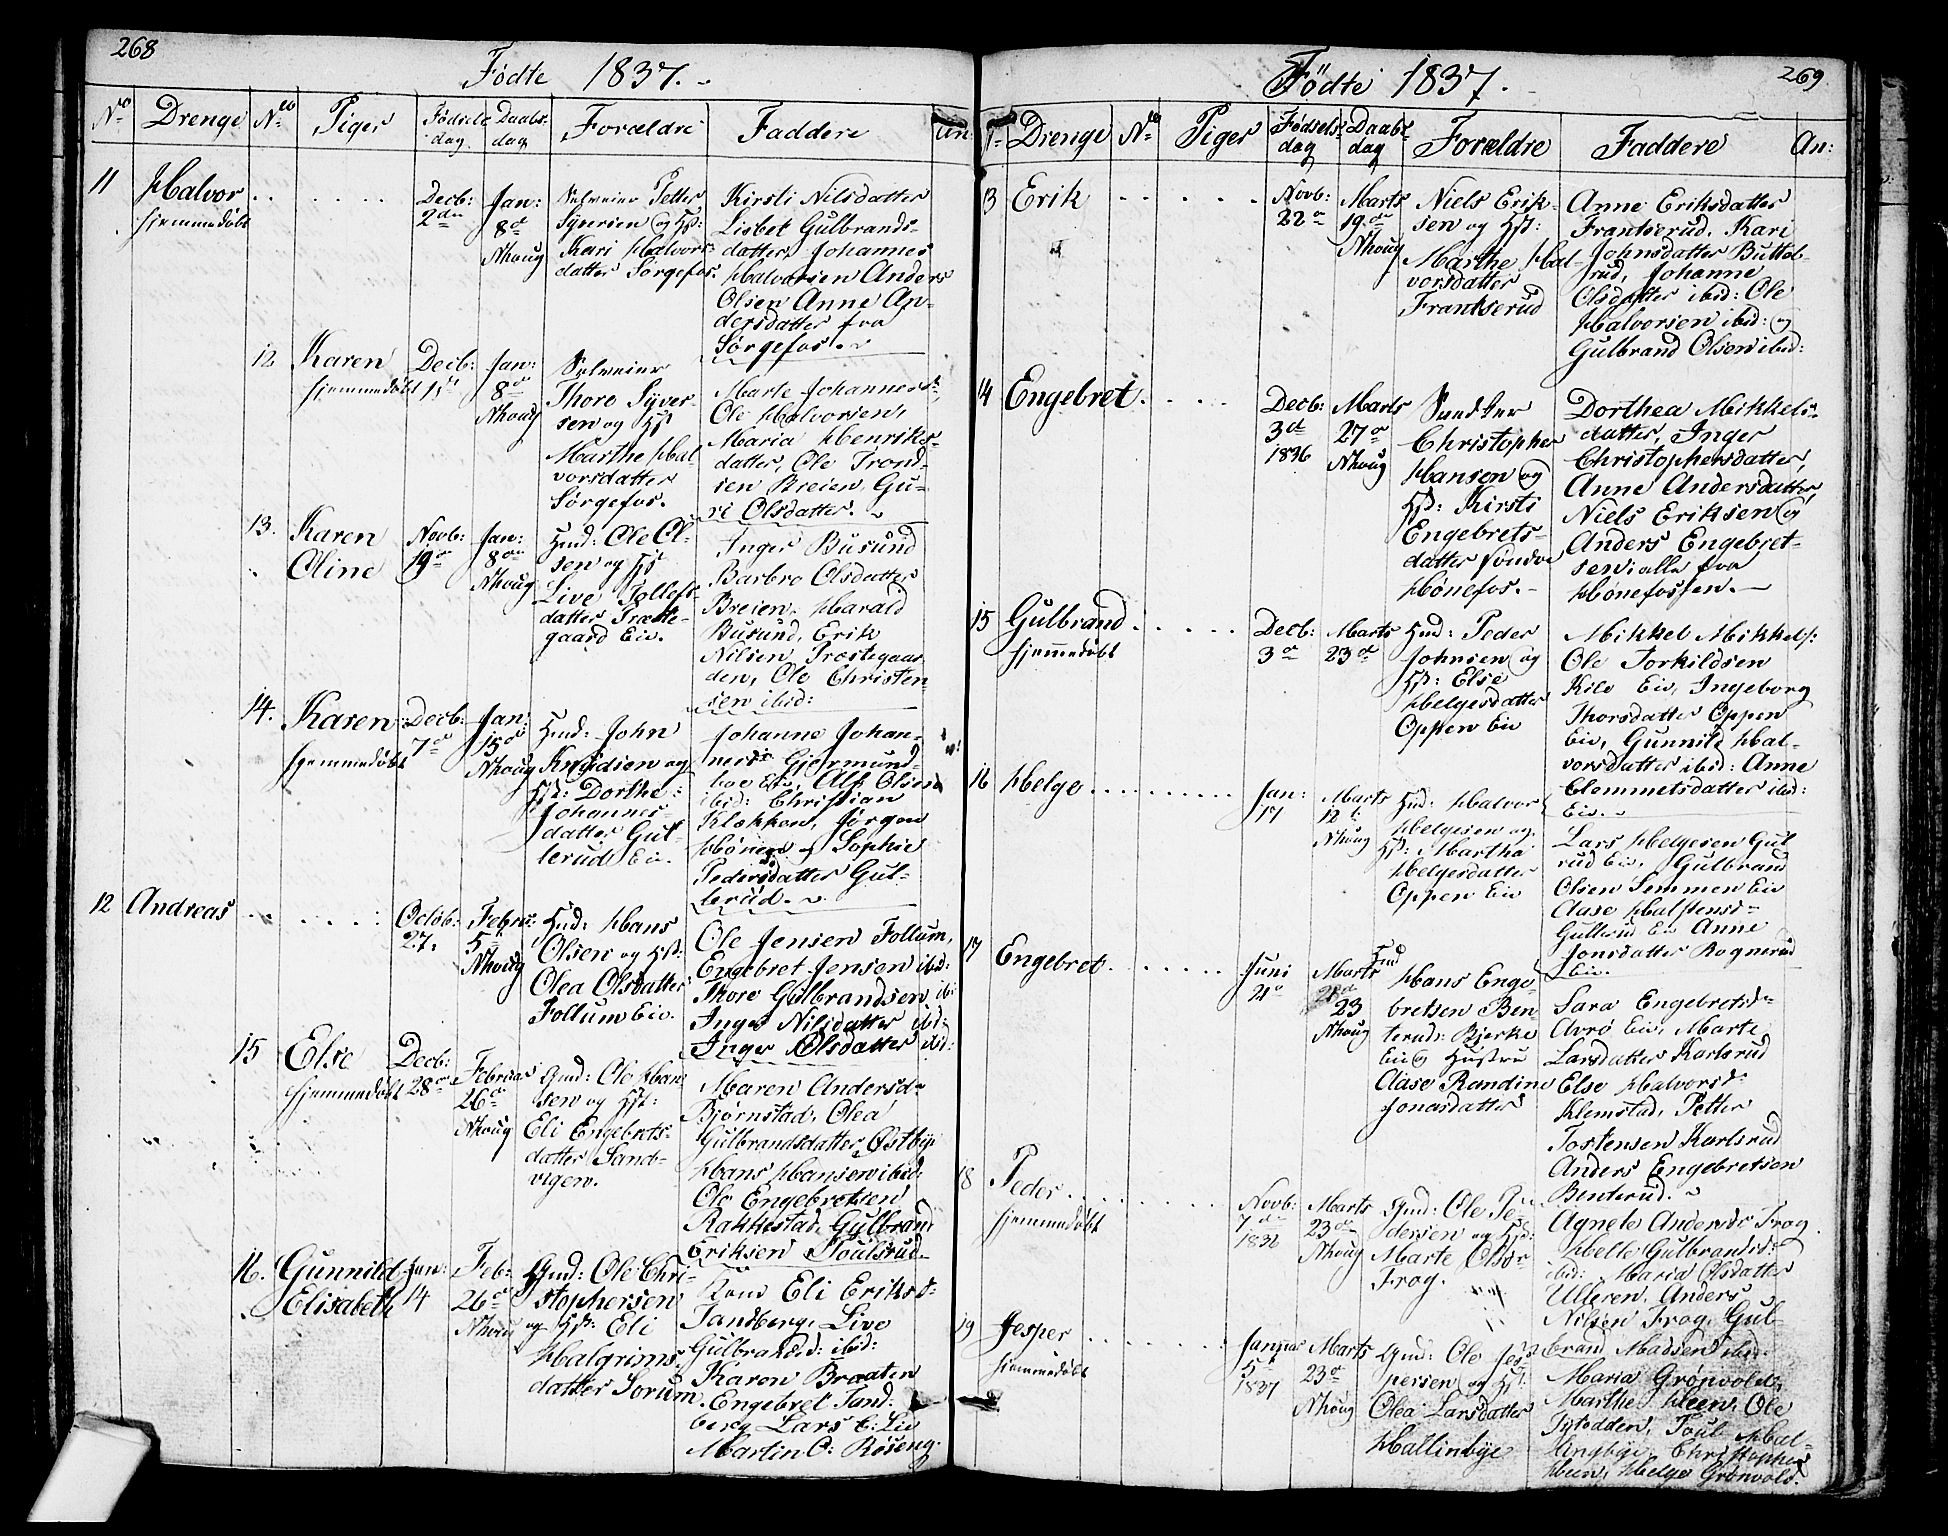 268
Fødte 1837.
No Drenge No Piger Fødselsdag Daabsdag Forældre Faddere An:
11 Halvor
hjemmedøbt
Decb: 2den
Jan: 8de
Nhoug
Selveier Petter
Syversen og Hst:
Kari Halvors-
datter Sørgefos.
Kirsti Nilsdatter
Lisbet Gulbrands-
datter, Johannes
Halvorsen Anders
Olsen Anne An-
dersdatter fra
Sørgefos.
12 Karen
hjemmedøbt
Decb: 15
Jan: 8de
Nhoug
Selveier
Thore Syver-
sen og Hst
Marthe Hal-
vorsdatter
Sørgefos.
Marte Johannesd.
Ole Halvorsen,
Maria Henriks-
datter, Ole Trond-
sen Breien, Gu-
ri Olsdatter.
13. Karen
Oline
Novb: 19de
Jan: 8de
Nhoug
Hmd: Ole Ol-
sen og Hst
Live Tollefs-
datter Præste-
gaard Eie.
Inger Busund
Barbro Olsdatter
Breien, Harald
Busund, Erik
Nilsen Præstegaar
den, Ole Christen-
sen ibid:
14. Karen
hjemmedøbt
Decb: 7de
Jan: 15de
Nhoug
Hmd: John
Knudsen og
Hst: Dorthe
Johannes-
datter Gul-
lerud Eie.
Johanne Johan-
nesd: Gjermund-
boe Eie, Alf Olsen
ibid: Christian
Klækken, Jørgen
Hønen og Sophie
Pedersdatter Gul-
lerud.
12 Andreas
Octob: 27.
Febru: 5te
Nhoug
Hmd: Hans
Olsen og Hst:
Olea Olsdatter
Follum Eie.
Ole Jensen Follum,
Engebret Jensen ibid:
Thore Gulbrandsen ibi
Inger Nilsdatter ibid:
Inger Olsdatter ibid:
15 Else
hjemmedøbt
Decb: 28de
Februar 26de
Nhoug
Hmd: Ole Han
sen og Hst:
Eli Engebrets-
datter Sand-
vigen.
Maren Andersd-
Bjørnstad, Olea
Gulbrandsdatter Østbye
Hans Hansen ibid:
Ole Engebretsen
Rakkestad Gulbrand
Eriksen Poulsrud
16. Gunnild
Elisabeth
Jan: 14
Feb: 26de
Nhoug
Hmd: Ole Chri-
stophersen
og Hst: Eli
Halgrims
datter Sorum
Eli Eriksd-
Tandberg, Live
Gulbrandsd: ibid:
Karen Braaten
Engebret Tand-
berg Lars E: Lie
Martin O: Røseng.
269
Födte 1837.
No Drenge No Piger Fødselsdag Daabsdag Forældre Faddere An:
13 Erik
Novb: 22de
Marts 19de
Nhoug
Niels Erik-
sen og Hst:
Marthe Hal-
vorsdatter
Frantserud
Anne Eriksdatter
Frantserud, Kari
Johnsdatter Buttol-
rud, Johanne
Olsdatter ibid: Ole
Halvorsen ibid: og
Gulbrand Olsen ibid:
14 Engebret
Decb: 3de
1836
Marts 27de
Nhoug
Christopher
Hansen og
Hst: Kirsti
Engebrets-
datter søndre
Hønefos.
Dorthea Mikkels-
datter, Inger
Christophersdatter,
Anne Andersdatter,
Niels Eriksen og
Anders Engebret-
sen, alle fra
Hønefossen.
15 Gulbrand
hjemmedøbt
Decb: 3de
Marts 23de
Hmd: Peder
Johnsen og
Hst: Else
Helgesdatter
Oppen Eie
Mikkel Mikkels:
Ole Torkildsen
Kile Eie, Ingeborg
Thorsdatter Oppen
Eie, Gunnild Hal-
vorsdatter ibid: Anne
Clemmetsdatter ibid:
Eie.
16 Helge
Jan: 17
Marts 12te
Nhoug
Hmd: Halvor
Helgesen og
Hst: Martha
Helgesdatter
Oppen Eie
Lars Helgesen Gul
rud Eie. Gulbrand
Olsen Semmen Eie
Aase Halstensd-
Gullerud Eie Anne
Jonsdatter Rognerud
Eie.
17 Engebret
Juni 21de
Marts
23
Nhoug
Hmd
Hans Enge-
bretsen Ben-
terud: Bjerke
Eie og Hustru
Aase Randine
Jonasdatter
Sara Engebretsd-
Avrø Eie, Marte
Larsdatter Karlsrud
Else Halvorsd:
Klemstad, Petter
Tostensen Karlsrud
Anders Engebretsen
Benterud.
18 Peder
hjemmedøbt
Novb: 7de
1836
Marts 23de
Nhoug
Hmd: Ole Pe-
dersen og Hst:
Marte Olsd-
Frog.
Agnete Andersdr Frog
Helle Gulbrandsd:
ibid: Maria Olsdatter
Ulleren, Anders
Nilsen Frog, Gul-
brand Madsen ibid:
19 Jesper
hjemmedøbt
Januar 5te
1837
Marts 23de
Nhoug
Hmd: Ole Jes-
persen og Hst:
Olea Larsdatter
Hallinbye
Maria Grønvold,
Marthe Heen, Ole
Poul Hal-
lingbye, Christopher
Heen, Helge Grønvold.